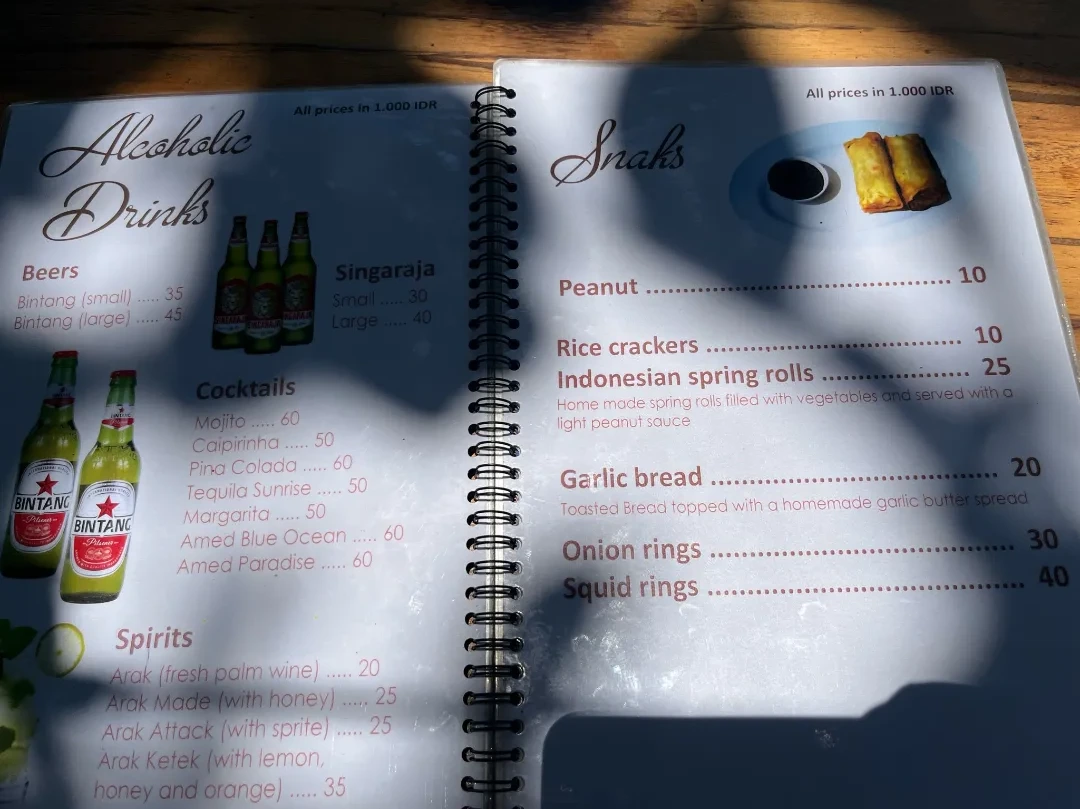 All prices in 1.000 IDR
Alcoholic
Drinks
Beers
Bintang (small) ..... 35
Bintang (large) ..... 45
Singaraja
Small ..... 30
Large ..... 40
BINTANG
Pilsener
BINTANG
Pilsener
Cocktails
Mojito ..... 60
Caipirinha ..... 50
Pina Colada ..... 60
Tequila Sunrise ..... 50
Margarita ..... 50
Amed Blue Ocean ..... 60
Amed Paradise ..... 60
Spirits
Arak (fresh palm wine) ..... 20
Arak Made (with honey) ..... 25
Arak Attack (with sprite) ..... 25
Arak Ketek (with lemon,
honey and orange) ..... 35
All prices in 1.000 IDR
Snaks
Peanut ................................................ 10
Rice crackers ........................................ 10
Indonesian spring rolls ....................... 25
Home made spring rolls filled with vegetables and served with a
light peanut sauce
Garlic bread ........................................... 20
Toasted Bread topped with a homemade garlic butter spread
Onion rings .............................................. 30
Squid rings ............................................... 40